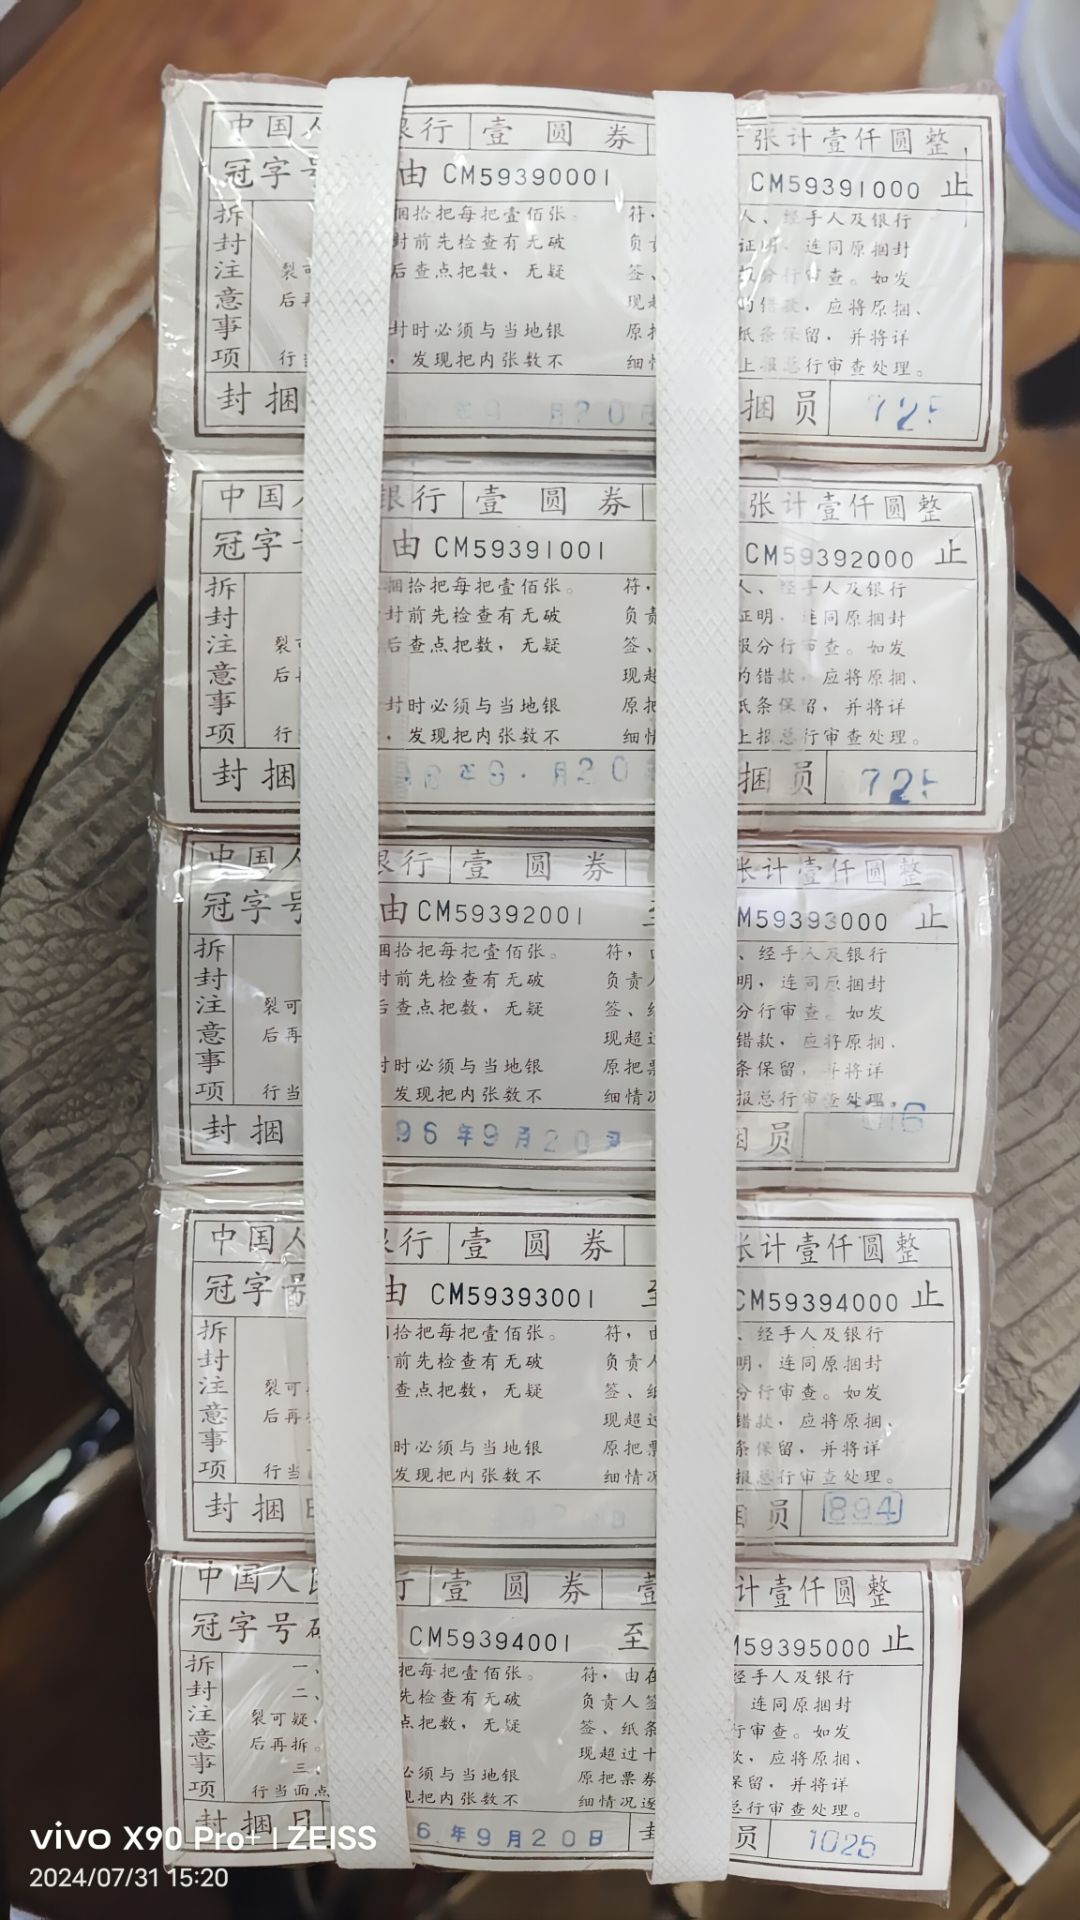 中国人 银行 壹圆券 张计壹仟圆整
冠字号 由 CM59390001 CM59391000 止
拆封注意事项
捆拾把每把壹佰张。 符, 人、经手人及银行
封前先检查有无破 负责 证明, 连同原捆封
裂可 后查点把数, 无疑 签、 报分行审查。如发
后再 现超 的错款, 应将原捆、
封时必须与当地银 原把 纸条保留, 并将详
行当 , 发现把内张数不 细情 上报总行审查处理。
封捆 年9月20日 捆员 725
中国人 银行 壹圆券 张计壹仟圆整
冠字 由 CM59391001 CM59392000 止
拆封注意事项
捆拾把每把壹佰张。 符, 人、经手人及银行
封前先检查有无破 负责 证明, 连同原捆封
裂可 后查点把数, 无疑 签、 报分行审查。如发
后再 现超 的错款, 应将原捆、
封时必须与当地银 原把 纸条保留, 并将详
行 , 发现把内张数不 细情 上报总行审查处理。
封捆 年9月20 捆员 725
中国人 银行 壹圆券 张计壹仟圆整
冠字号 由 CM59392001 至 M59393000 止
拆封注意事项
捆拾把每把壹佰张。 符, 、经手人及银行
封前先检查有无破 负责人 明, 连同原捆封
裂可 后查点把数, 无疑 签、 分行审查。如发
后再 现超过 错款, 应将原捆、
封时必须与当地银 原把票 条保留, 并将详
行当 发现把内张数不 细情况 报总行审查处理。
封捆 96年9月20日 员
中国人 银行 壹圆券 张计壹仟圆整
冠字号 由 CM59393001 至 CM59394000 止
拆封注意事项
拾把每把壹佰张。 符, 由 、经手人及银行
前先检查有无破 负责人 明, 连同原捆封
裂可 查点把数, 无疑 签、纸 分行审查。如发
后再 现超过 错款, 应将原捆、
时必须与当地银 原把票 条保留, 并将详
行当 发现把内张数不 细情况 报总行审查处理。
封捆日 员 894
中国人民 行 壹圆券 壹 计壹仟圆整
冠字号码 CM59394001 至 M59395000 止
拆封注意事项
一、 把每把壹佰张。 符, 由在 经手人及银行
二、 先检查有无破 负责人签 连同原捆封
裂可疑, 点把数, 无疑 签、纸条 行审查。如发
后再拆。 现超过十 款, 应将原捆、
三、 必须与当地银 原把票券 保留, 并将详
行当面点 现把内张数不 细情况逐 总行审查处理。
封捆日 6年9月20日 封 员 1025
vivo X90 Pro+ | ZEISS
2024/07/31 15:20